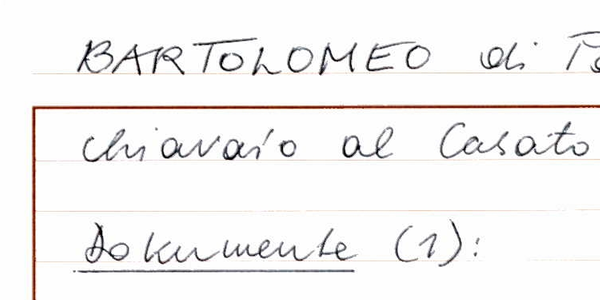 BARTOLOMEO di
chiavaio al Casato
Dokumente (1):